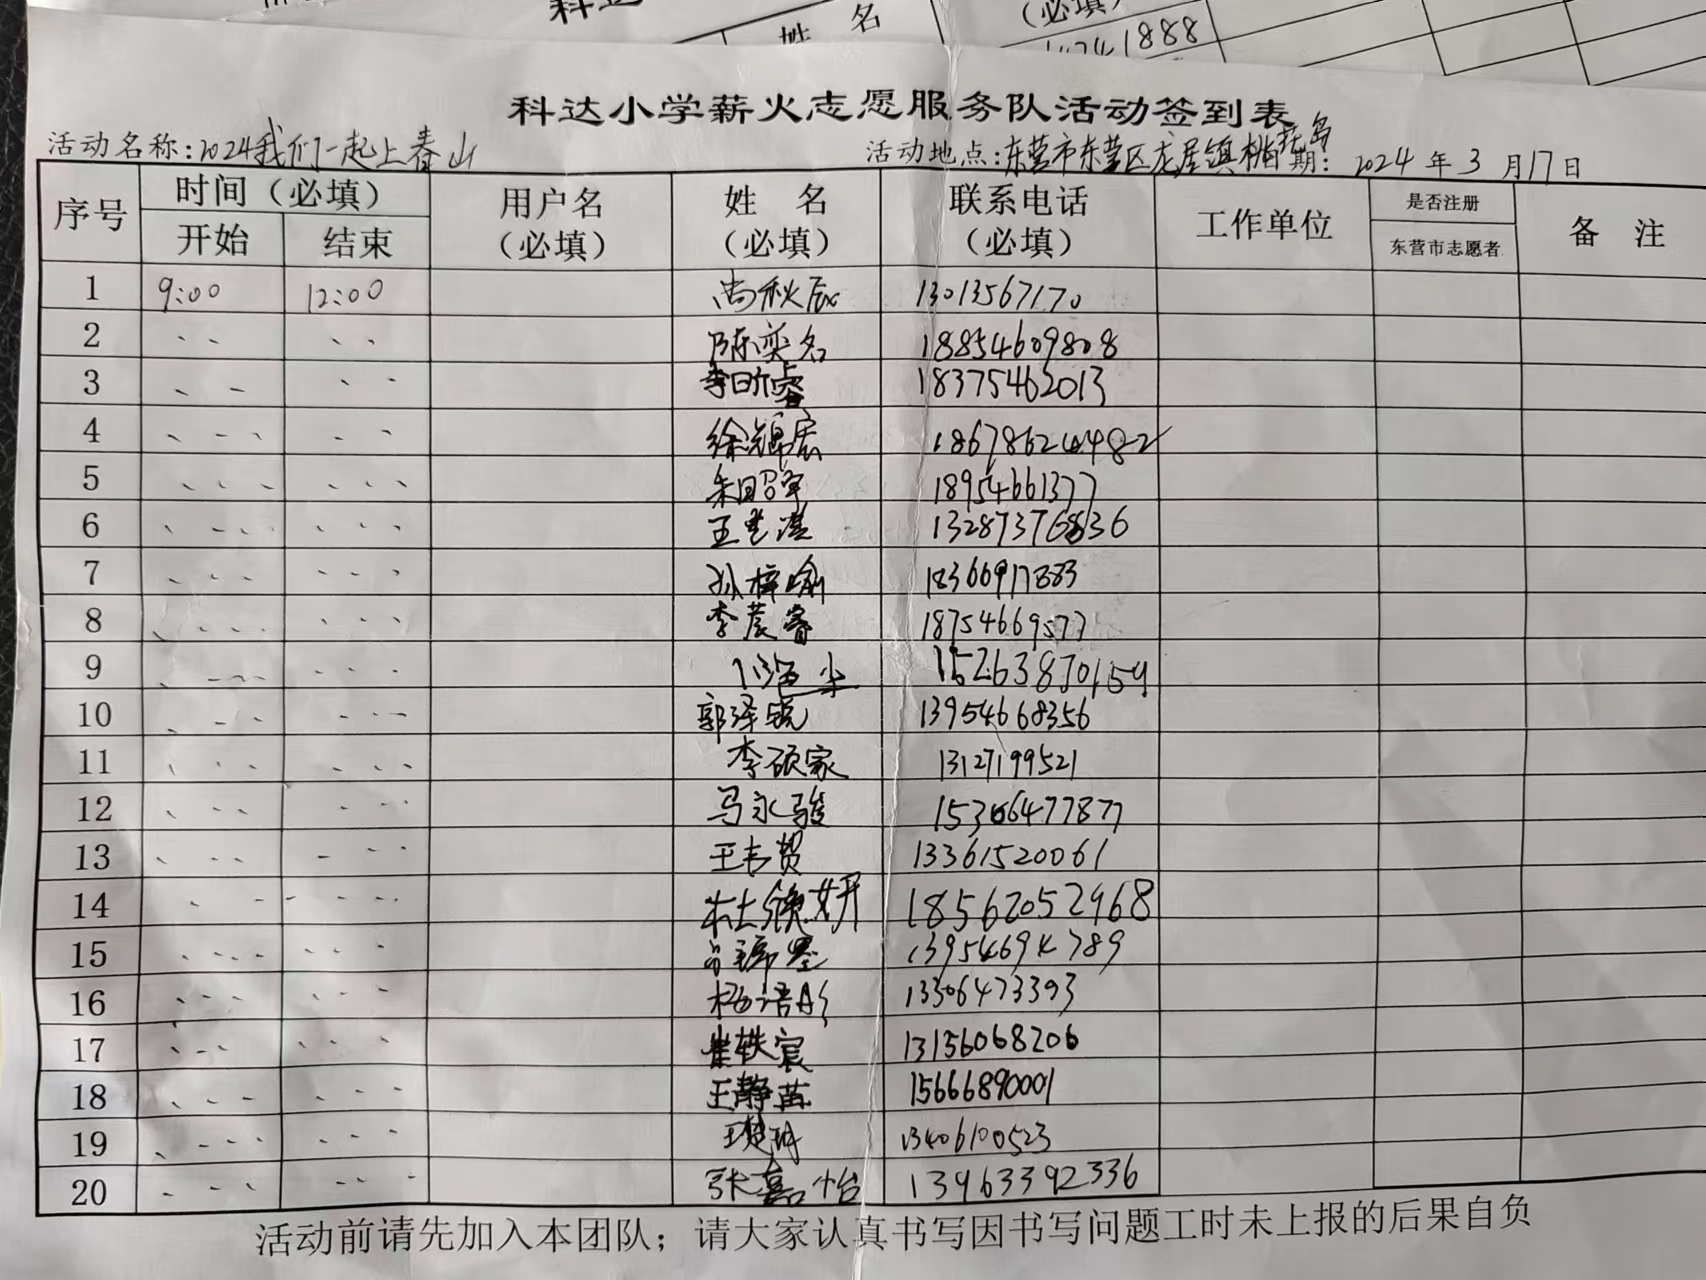 姓 名
(必填)
1888
科达小学薪火志愿服务队活动签到表
活动名称:2024我们一起上春山 活动地点:东营市东营区龙居镇桃花岛 日期: 2024 年 3 月 17 日
序号 时间（必填） 用户名（必填） 姓 名（必填） 联系电话（必填） 工作单位 是否注册 东营市志愿者 备 注
开始 结束
1 9:00 12:00 尚秋辰 13013567170
2 陈奕名 18854609808
3 李昕睿 18375462013
4 徐锦宸 18678624482
5 朱昭军 18954661377
6 王艺淇 13287376836
7 孙梓喻 18366917883
8 李晨睿 18754669577
9 15263870159
10 郭泽锐 13954668356
11 李硕家 13127199521
12 马永骏 15366477877
13 王韦贺 13361520061
14 杜焕妍 18562052968
15 13954694789
16 杨语彤 13306473393
17 崔轶宸 13156068206
18 王静苗 15666890001
19 13406100523
20 张嘉怡 13963392336
活动前请先加入本团队；请大家认真书写因书写问题工时未上报的后果自负